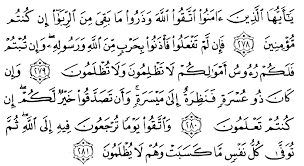 يَٰٓأَيُّهَا ٱلَّذِينَ ءَامَنُوا۟ ٱتَّقُوا۟ ٱللَّهَ وَذَرُوا۟ مَا بَقِىَ مِنَ ٱلرِّبَوٰٓا۟ إِن كُنتُم
مُّؤْمِنِينَ ٢٧٨ فَإِن لَّمْ تَفْعَلُوا۟ فَأْذَنُوا۟ بِحَرْبٍ مِّنَ ٱللَّهِ وَرَسُولِهِۦ وَإِن تُبْتُمْ
فَلَكُمْ رُءُوسُ أَمْوَٰلِكُمْ لَا تَظْلِمُونَ وَلَا تُظْلَمُونَ ٢٧٩ وَإِن
كَانَ ذُو عُسْرَةٍ فَنَظِرَةٌ إِلَىٰ مَيْسَرَةٍ وَأَن تَصَدَّقُوا۟ خَيْرٌ لَّكُمْ إِن
كُنتُمْ تَعْلَمُونَ ٢٨٠ وَٱتَّقُوا۟ يَوْمًا تُرْجَعُونَ فِيهِ إِلَى ٱللَّهِ ثُمَّ
تُوَفَّىٰ كُلُّ نَفْسٍ مَّا كَسَبَتْ وَهُمْ لَا يُظْلَمُونَ ٢٨١